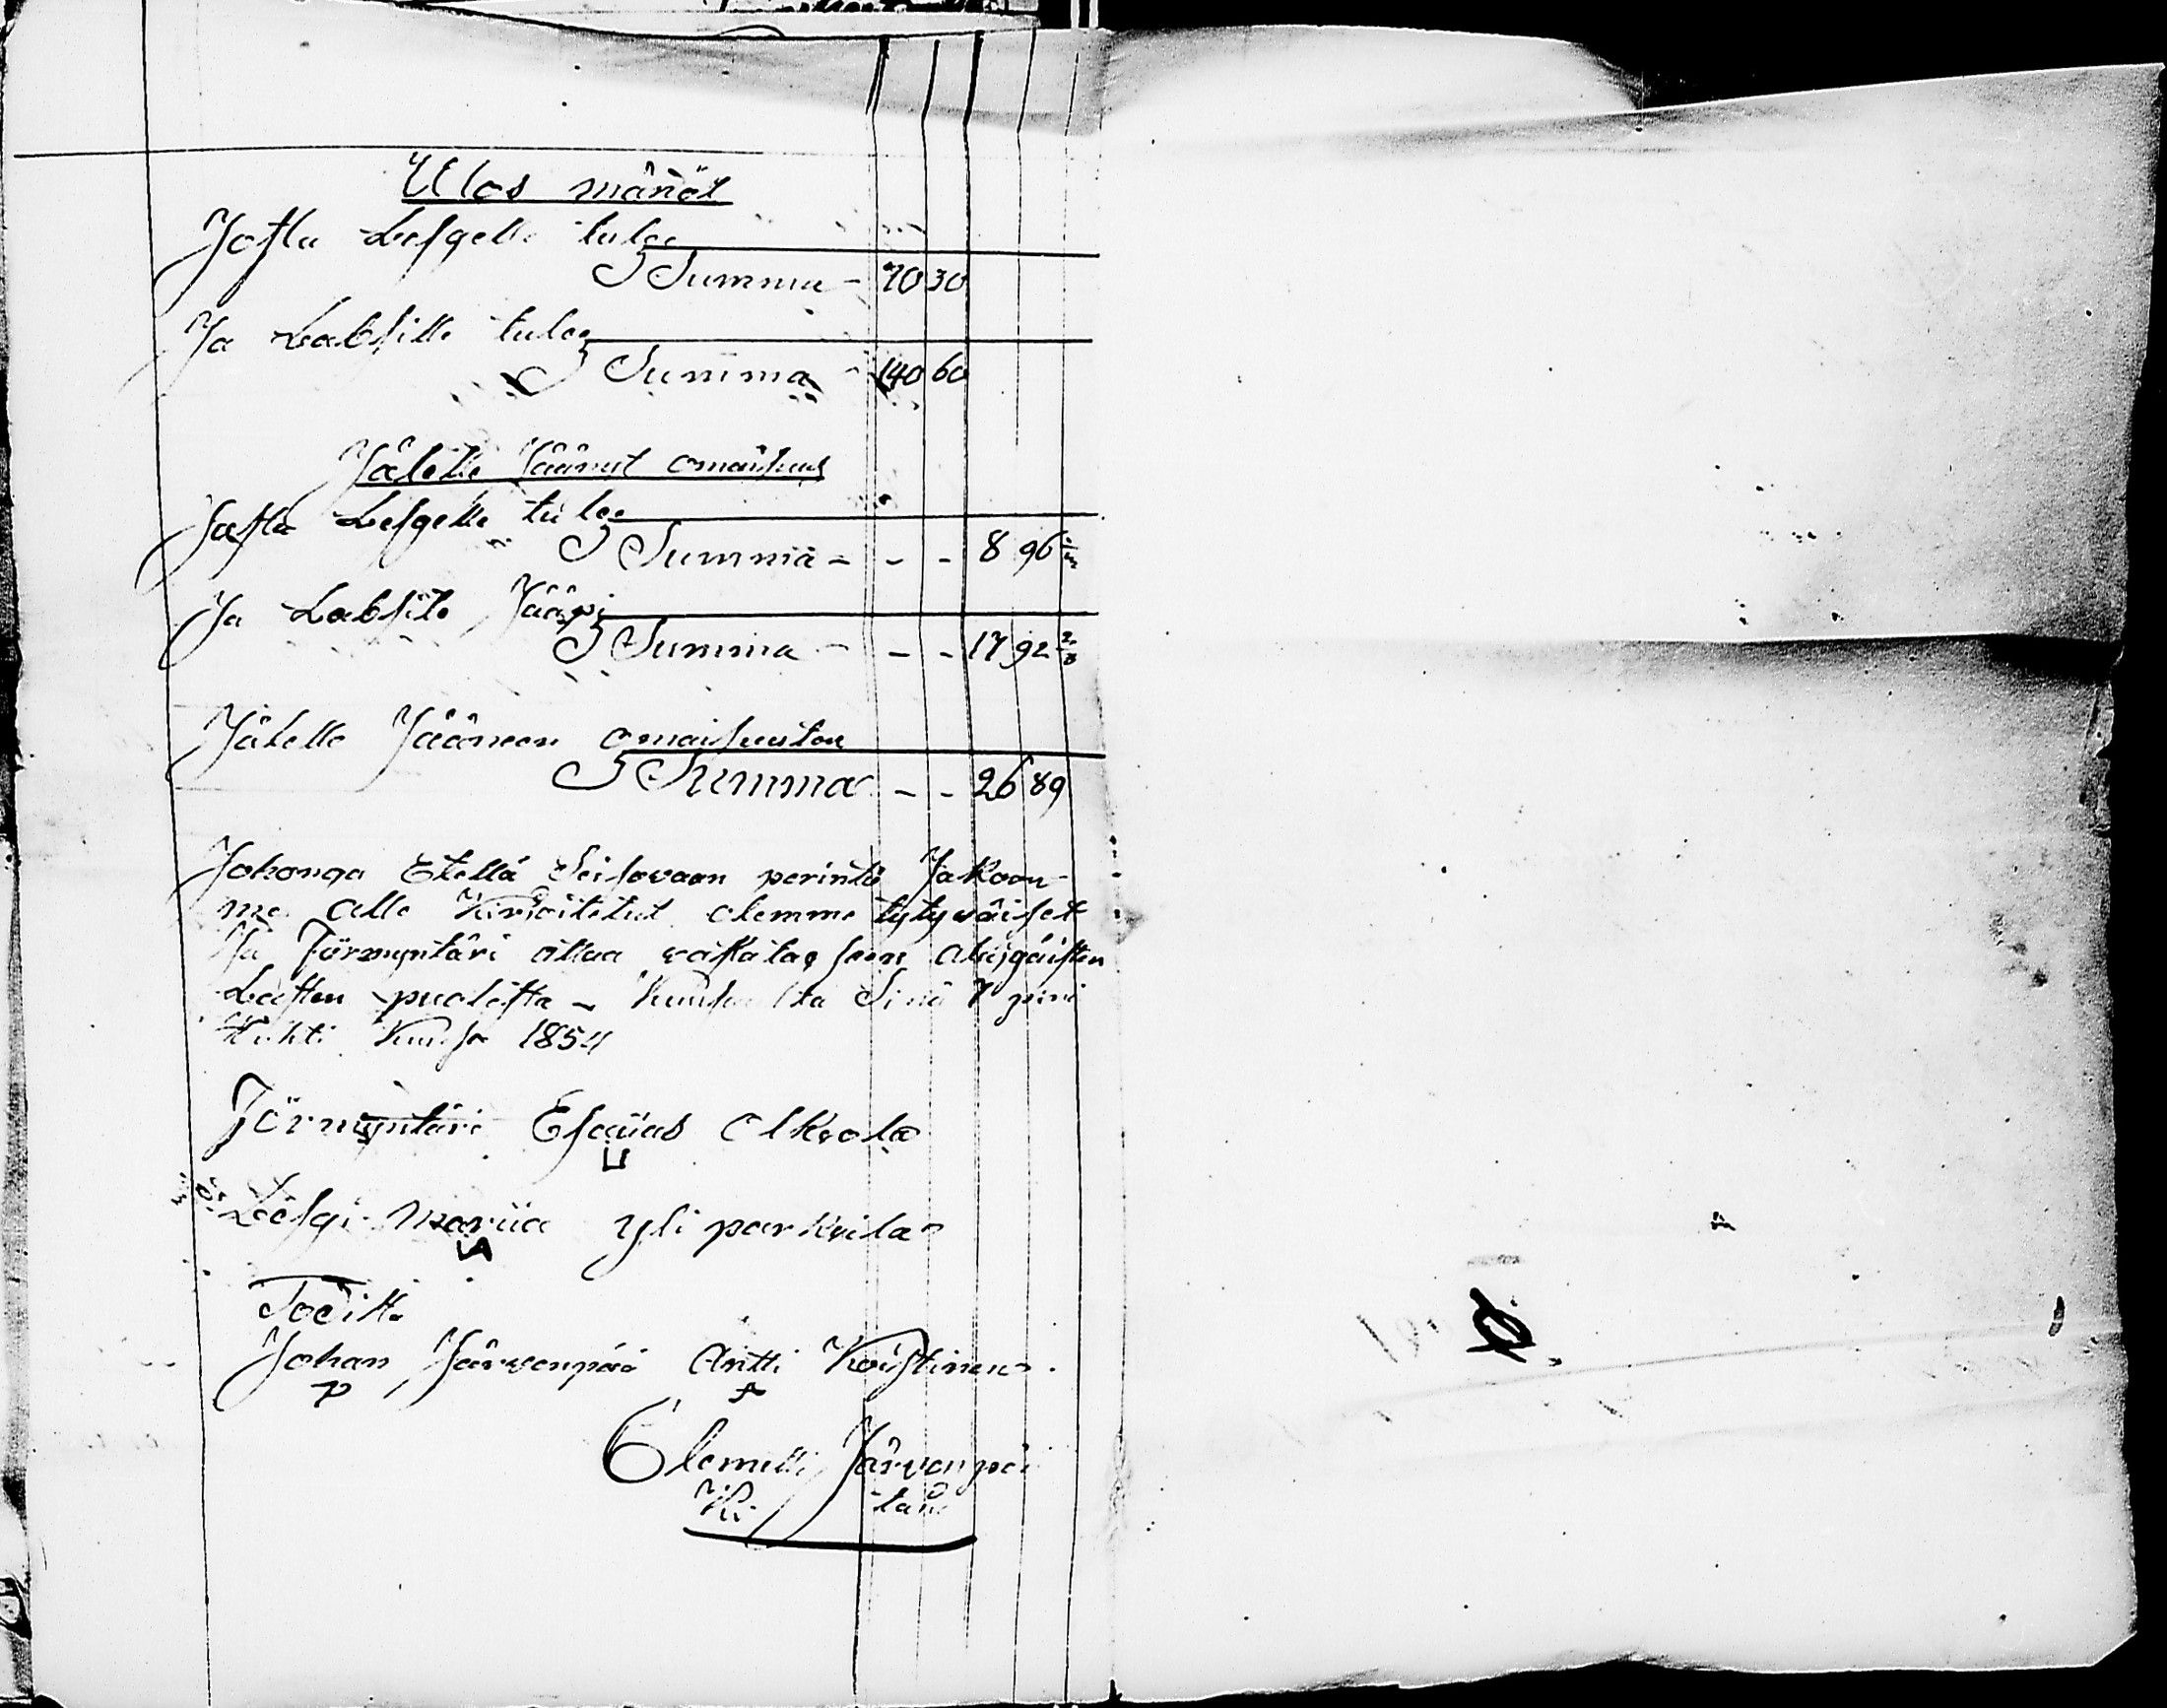 Ulos mänöt
Josta Lesgelle tulee
Summa - 70 30
Ja Labsille tulee
Summa - 140 60
Jälelle Jäänut omaisuus
Josta Lesgelle tulee
Summa - - - 8 96 1/3
Ja Labsile Jääpi
Summa - - - 17 92 2/3
Jälelle Jääneen omaisuuton
Summa - - 26 89
Johonga Etellä Seisovaan perintö Jakoon
me alle Kirjoitetut olemme tytyväiset
Ja Förmyntäri ottaa vastatag seen
Lasten puolesta - Sinä 7 pnä
Huhti Kuusa 1854
Förmyntäri Esaias Alkvola
Läsgi Mariia yli parkkila
Todista
Johan Järvenpää Antti Koistinen
Clemetti Järvenpää